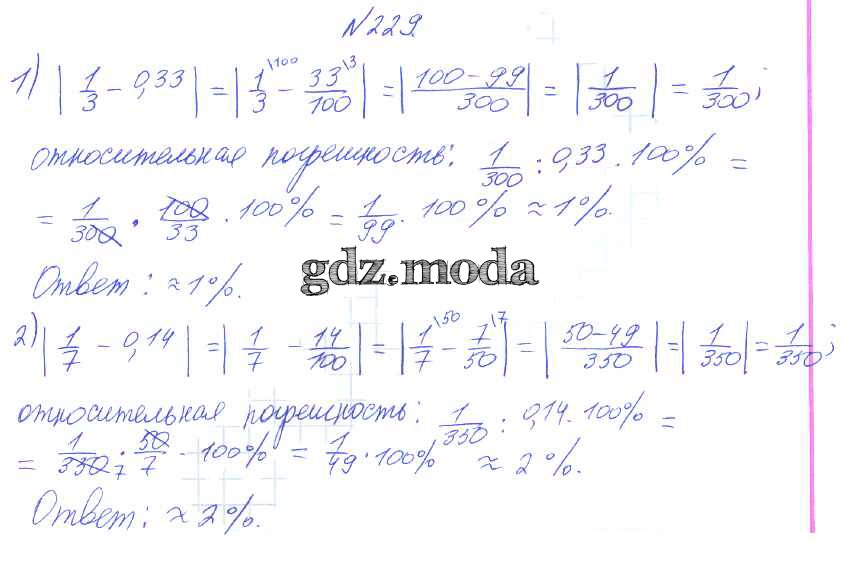 №229.
1) | 1/3 - 0,33 | = | 1/3 \100 - 33/100 \3 | = | (100-99)/300 | = | 1/300 | = 1/300;
относительная погрешность: 1/300 : 0,33 · 100% =
= 1/300 · 100/33 · 100% = 1/99 · 100% ≈ 1%.
gdz.moda
Ответ: ≈ 1%.
2) | 1/7 - 0,14 | = | 1/7 - 14/100 | = | 1/7 \50 - 7/50 \7 | = | (50-49)/350 | = | 1/350 | = 1/350;
относительная погрешность: 1/350 : 0,14 · 100% =
= 1/350 7 · 50/7 · 100% = 1/49 · 100% ≈ 2%.
Ответ: ≈ 2%.